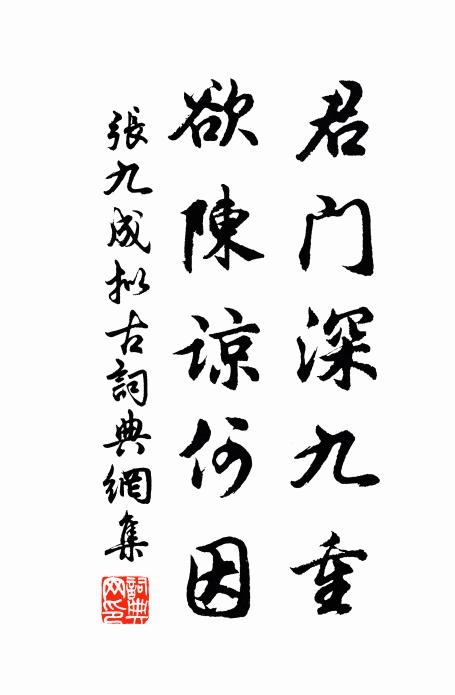 君门深九重
欲陳谅何因
張九成拟古詞典網集
詞典网印